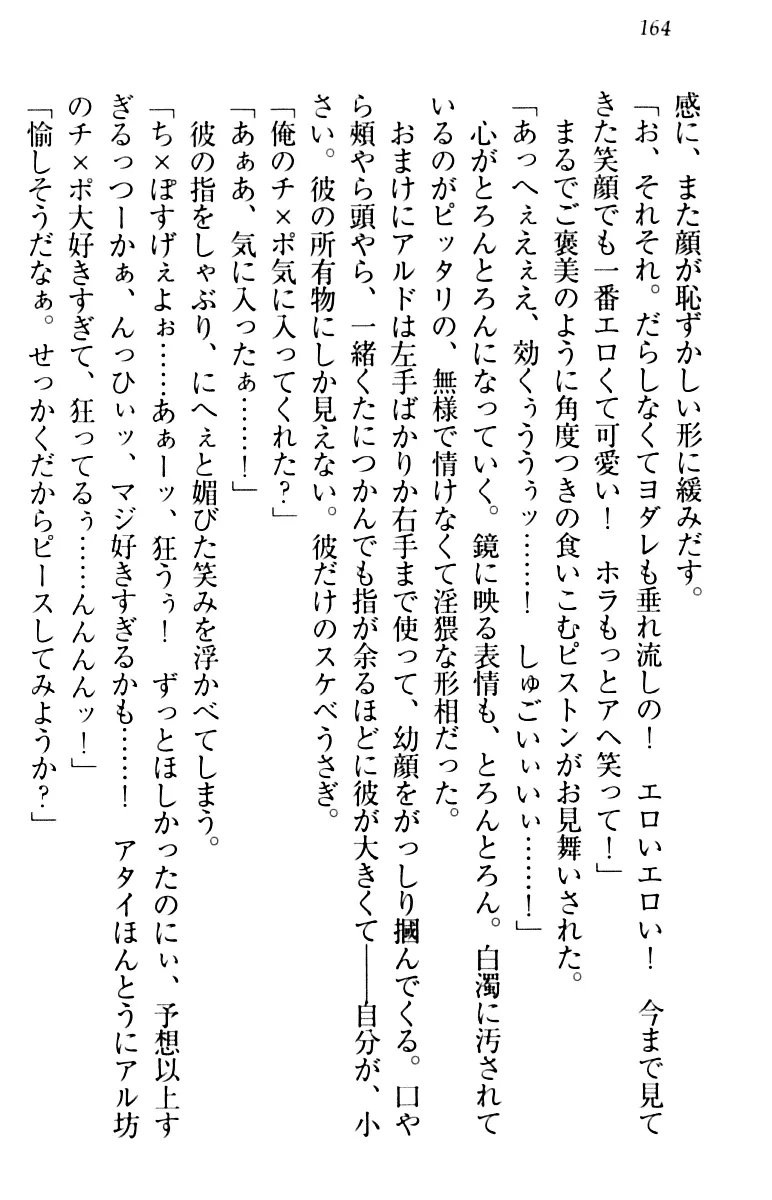 164
感に、また顔が恥ずかしい形に緩みだす。
「お、それそれ。だらしなくてヨダレも垂れ流しの！　エロいエロい！　今まで見て
きた笑顔でも一番エロくて可愛い！　ホラもっとアヘ笑って！」
まるでご褒美のように角度つきの食いこむピストンがお見舞いされた。
「あっへぇえぇえ、効くぅううぅッ……！　しゅごいぃいぃ……！」
心がとろんとろんになっていく。鏡に映る表情も、とろんとろん。白濁に汚されて
いるのがピッタリの、無様で情けなくて淫猥な形相だった。
おまけにアルドは左手ばかりか右手まで使って、幼顔をがっしり摑んでくる。口や
ら頰やら頭やら、一緒くたにつかんでも指が余るほどに彼が大きくて――自分が、小
さい。彼の所有物にしか見えない。彼だけのスケベうさぎ。
「俺のチ×ポ気に入ってくれた？」
「あぁあ、気に入ったぁ……！」
彼の指をしゃぶり、にへぇと媚びた笑みを浮かべてしまう。
「ち×ぽすげぇよぉ……あぁーッ、狂うぅ！　ずっとほしかったのにぃ、予想以上す
ぎるっつーかぁ、んっひぃッ、マジ好きすぎるかも……！　アタイほんとうにアル坊
のチ×ポ大好きすぎて、狂ってるぅ……んんんんッ！」
「愉しそうだなぁ。せっかくだからピースしてみようか？」